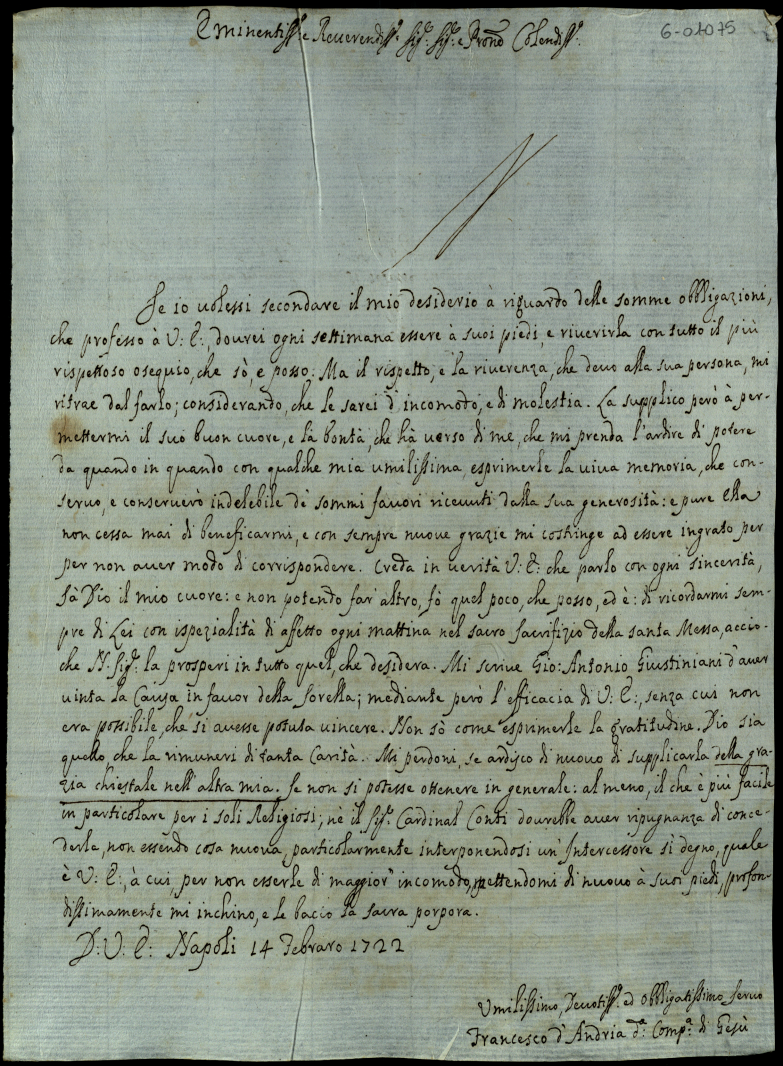 Eminentiss.e Reverendiss. Sig.r Sig.r e Pron̄e Colendiss.
6-01075
Se io volessi secondare il mio desiderio à riguardo delle somme obbligazioni,
che professo à V: E:, dovrei ogni settimana essere à suoi piedi, e riverirla con tutto il più
rispettoso osequio, che sò, e posso: Ma il rispetto, e la riverenza, che devo alla sua persona, mi
ritrae dal farlo; considerando, che le sarei d'incomodo, e di molestia. La supplico però à per-
mettermi il suo buon cuore, e là bontà, che hà verso di me, che mi prenda l'ardire di potere
da quando in quando con qualche mia umilissima esprimerle la viva memoria, che con-
servo, e conserverò indelebile de' sommi favori ricevuti dalla sua generosità: e pure Ella
non cessa mai di beneficarmi, e con sempre nuove grazie mi costringe ad essere ingrato per
per non aver modo di corrispondere. Creda in verità V: E: che parlo con ogni sincerità,
sà Dio il mio cuore: e non potendo far' altro, fò quel poco, che posso, ed è: di ricordarmi sem-
pre di Lei con ispezialità di affetto ogni mattina nel sacro sacrifizio della santa Messa, accio-
che N. Sig.r la prosperi in tutto quel, che desidera. Mi scrive Gio: Antonio Giustiniani d'aver
vinta la Causa in favor della sorella; mediante però l'efficacia di V: E:, senza cui non
era possibile, che si avesse potuta vincere. Non sò come esprimerle la gratitudine. Dio sia
quello, che la rimuneri di tanta Carità. Mi perdoni, se ardisco di nuovo di supplicarla della gra-
zia chiestale nell'altra mia. Se non si potesse ottenere in generale: al meno, il che è più facile
in particolare per i soli Religiosi; nè il Sig.r Cardinal Conti dovrebbe aver ripugnanza di conce-
derla, non essendo cosa nuova particolarmente interponendosi un' Intercessore sì degno, quale
è V: E:, à cui, per non esserle di maggior' incomodo, mettendomi di nuovo à suoi piedi, profon-
dissimamente mi inchino, e le bacio la sacra porpora.
D: V: E: Napoli 14 Febraro 1722
Umilissimo, Devotiss.o ed obbligatissimo servo
Francesco d'Andria d.a Comp.a di Gesù